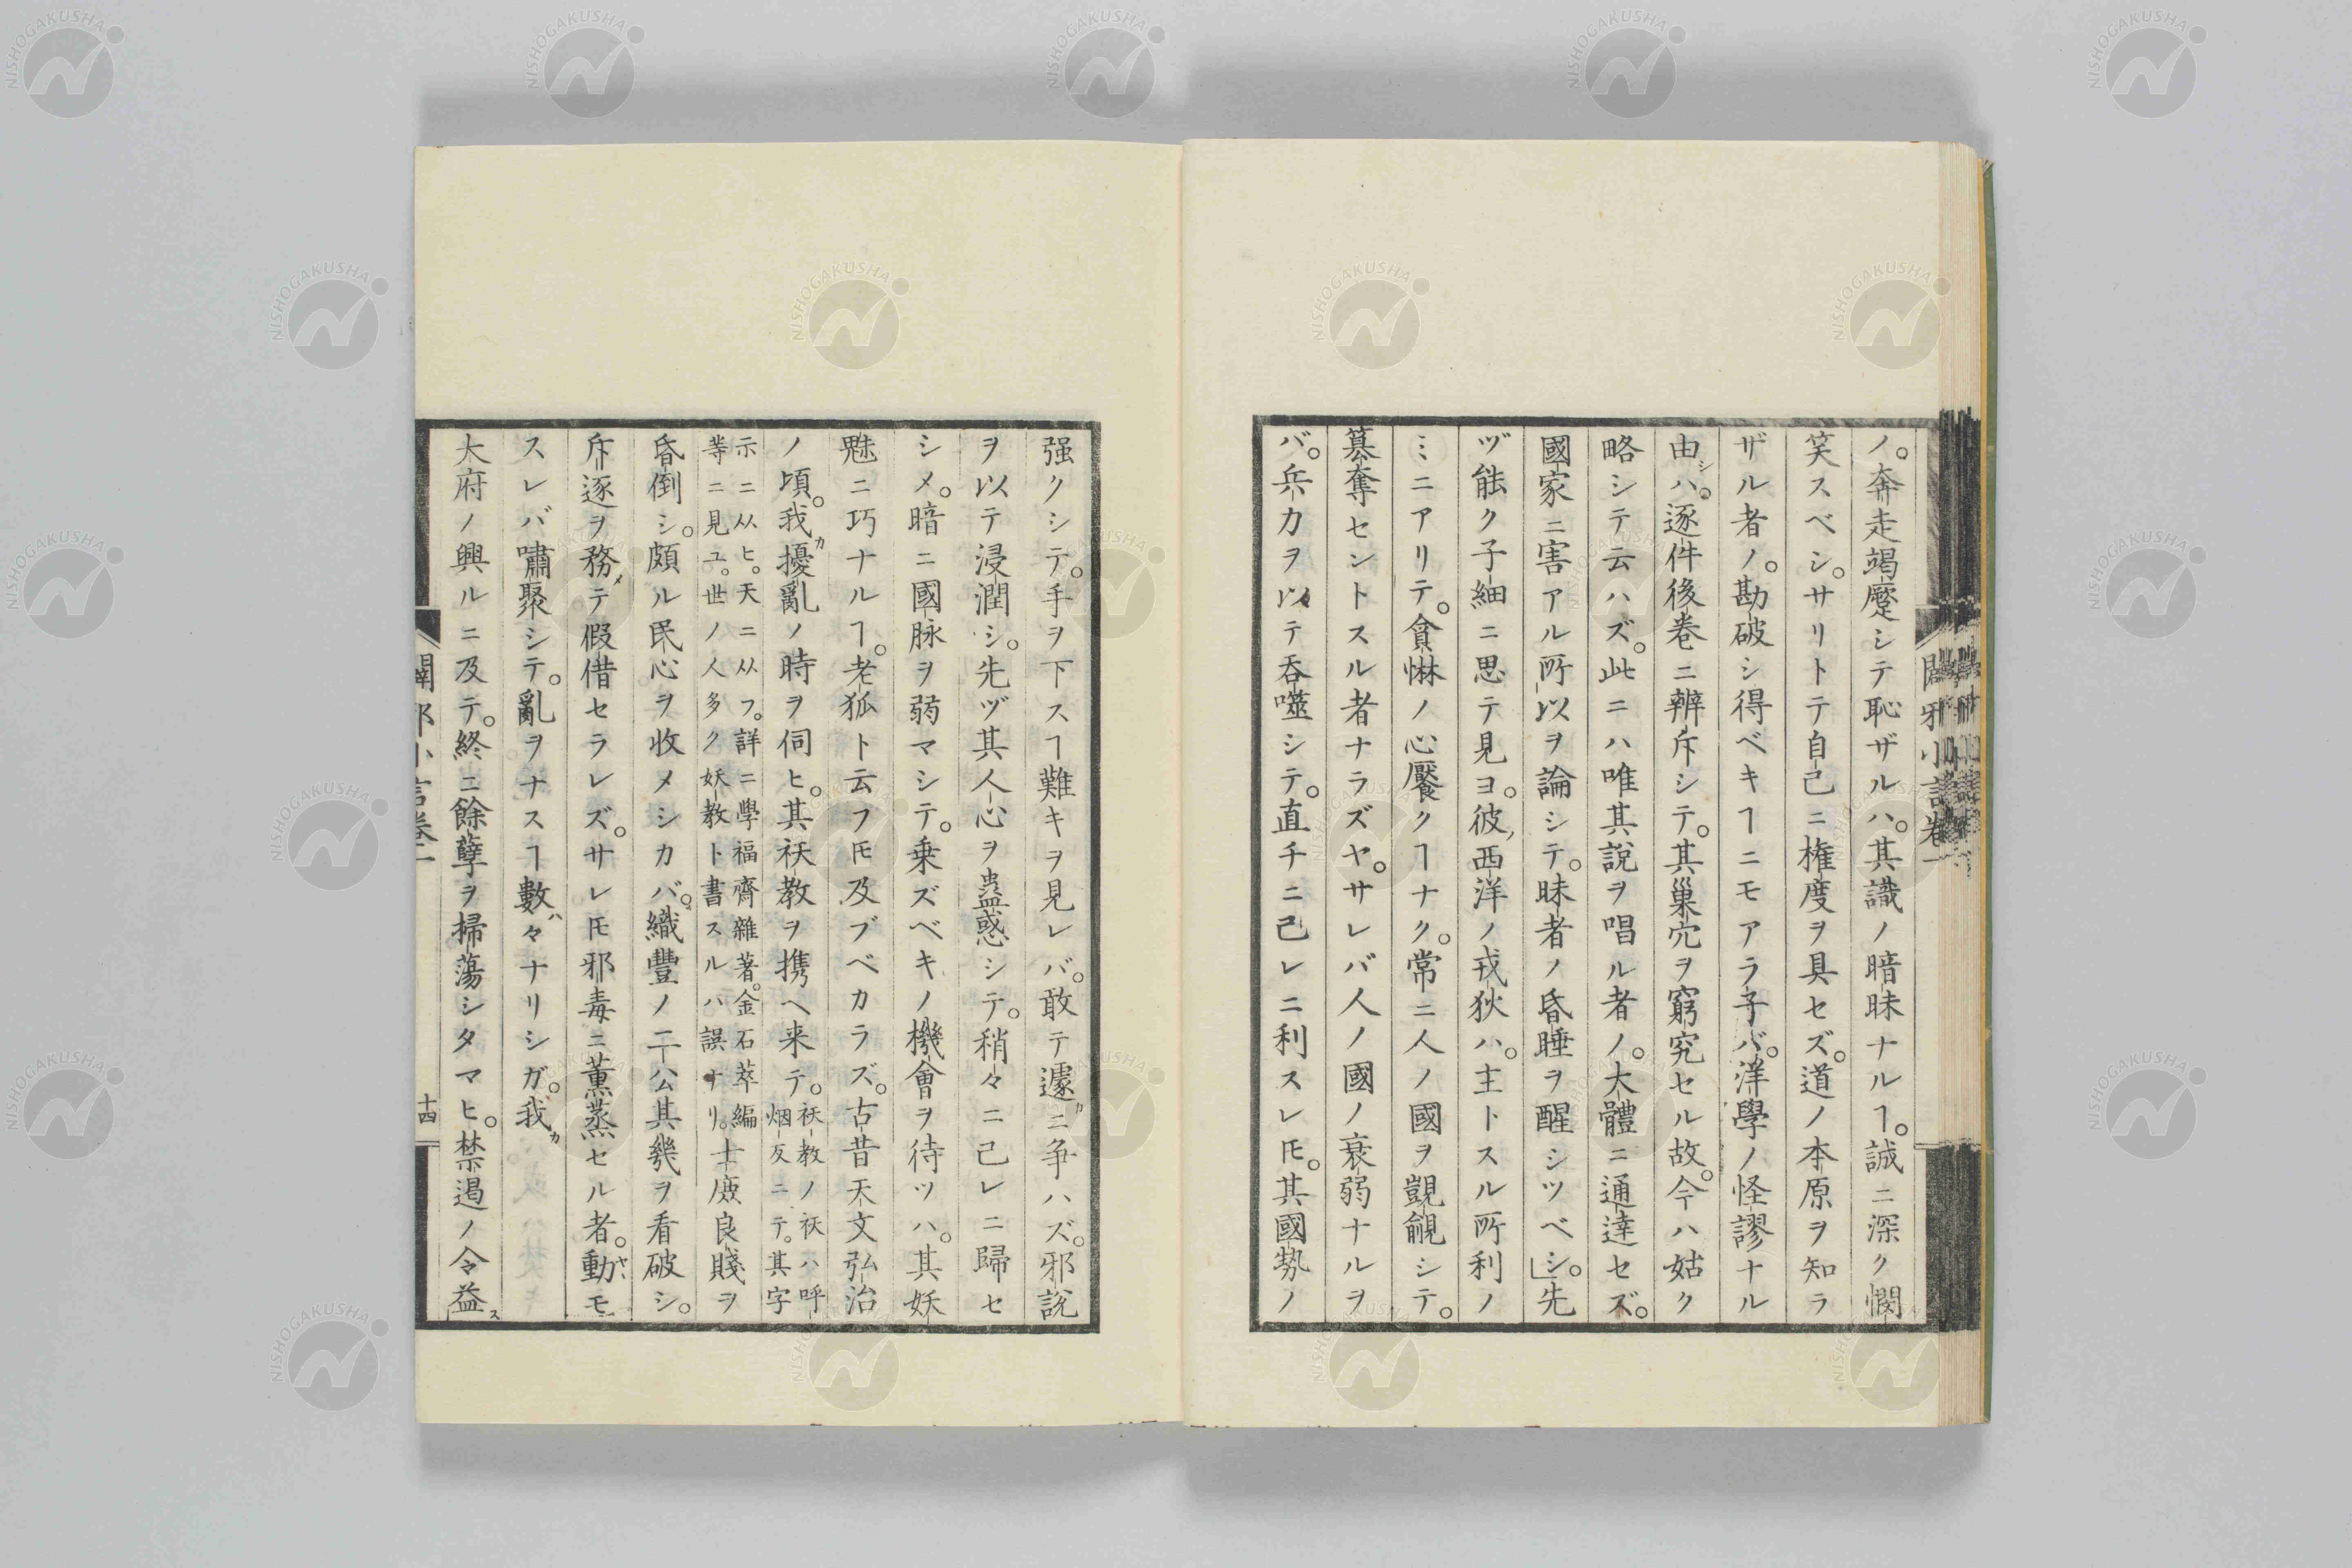 ノ。奔走竭蹷シテ恥ザルハ。其識ノ暗昧ナルヿ。誠ニ深ク憫
笑スベシ。サリトテ自己ニ権度ヲ具セズ。道ノ本原ヲ知ラ
ザル者ノ。勘破シ得ベキヿニモアラ子バ。洋學ノ怪謬ナル
由シハ。逐件後巻ニ辨斥シテ。其巢穴ヲ窮究セル故。今ハ姑ク
略シテ云ハズ。此ニハ唯其説ヲ唱ル者ノ。大體ニ通達セズ。
國家ニ害アル所以ヲ論シテ。昧者ノ昏睡ヲ醒シツベシ。」先
ヅ能ク子細ニ思テ見ヨ。彼ノ西洋ノ戎狄ハ。主トスル所利ノ
ミニアリテ。貪惏ノ心饜クヿナク。常ニ人ノ國ヲ覬覦シテ。
簒奪セントスル者ナラズヤ。サレバ人ノ國ノ衰弱ナルヲ
バ。兵力ヲ以テ呑噬シテ。直チニ己レニ利スレ𪜈。其國勢ノ
闢邪小言巻一
强クシテ。手ヲ下スヿ難キヲ見レバ。敢テ遽カニ争ハズ。邪説
ヲ以テ浸潤シ。先ヅ其人心ヲ蠱惑シテ。稍々ニ己レニ歸セ
シメ。暗ニ國脉ヲ弱マシテ。乗ズベキノ機會ヲ待ツハ。其妖
魅ニ巧ナルヿ。老狐ト云フ𪜈及ブベカラズ。古昔天文弘治
ノ頃。我カ擾亂ノ時ヲ伺ヒ。其祆教ヲ携ヘ来テ。祆教ノ祆ハ呼
烟反ニテ。其字
示ニ从ヒ。天ニ从フ。詳ニ學福齋雜著。金石萃編
等ニ見ユ。世ノ人多ク妖教ト書スルハ誤ナリ。士庶良賤ヲ
昏倒シ。頗ル民心ヲ收メシカバ。織豐ノ二公其幾ヲ看破シ。
斥逐ヲ務メテ假借セラレズ。サレ𪜈邪毒ニ薫蒸セル者。動モ
スレバ嘯聚シテ。亂ヲナスヿ數ハ々ナリシガ。我カ
大府ノ興ルニ及テ。終ニ餘孽ヲ掃蕩シタマヒ。禁遏ノ令益ス
闢邪小言巻一
十四